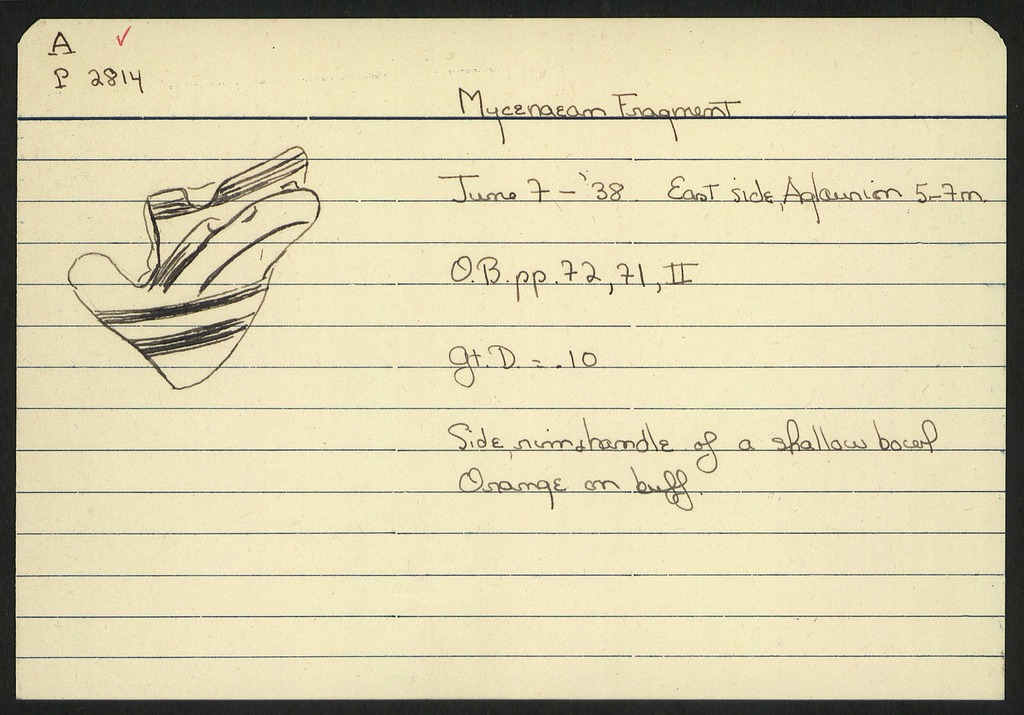 A ✓
P 2814
Mycenaean Fragment
June 7 - '38 East side, Aglaurion 5-7m.
O.B. pp. 72, 71, II
Gt. D. = .10
Side, rim & handle of a shallow bowl
Orange on buff.